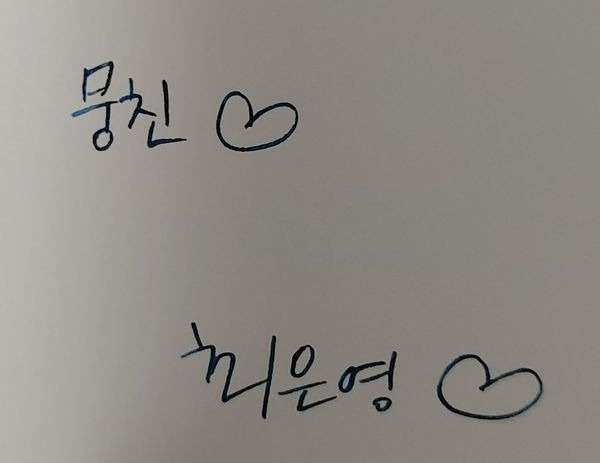 뭉친 ♡
최은영 ♡